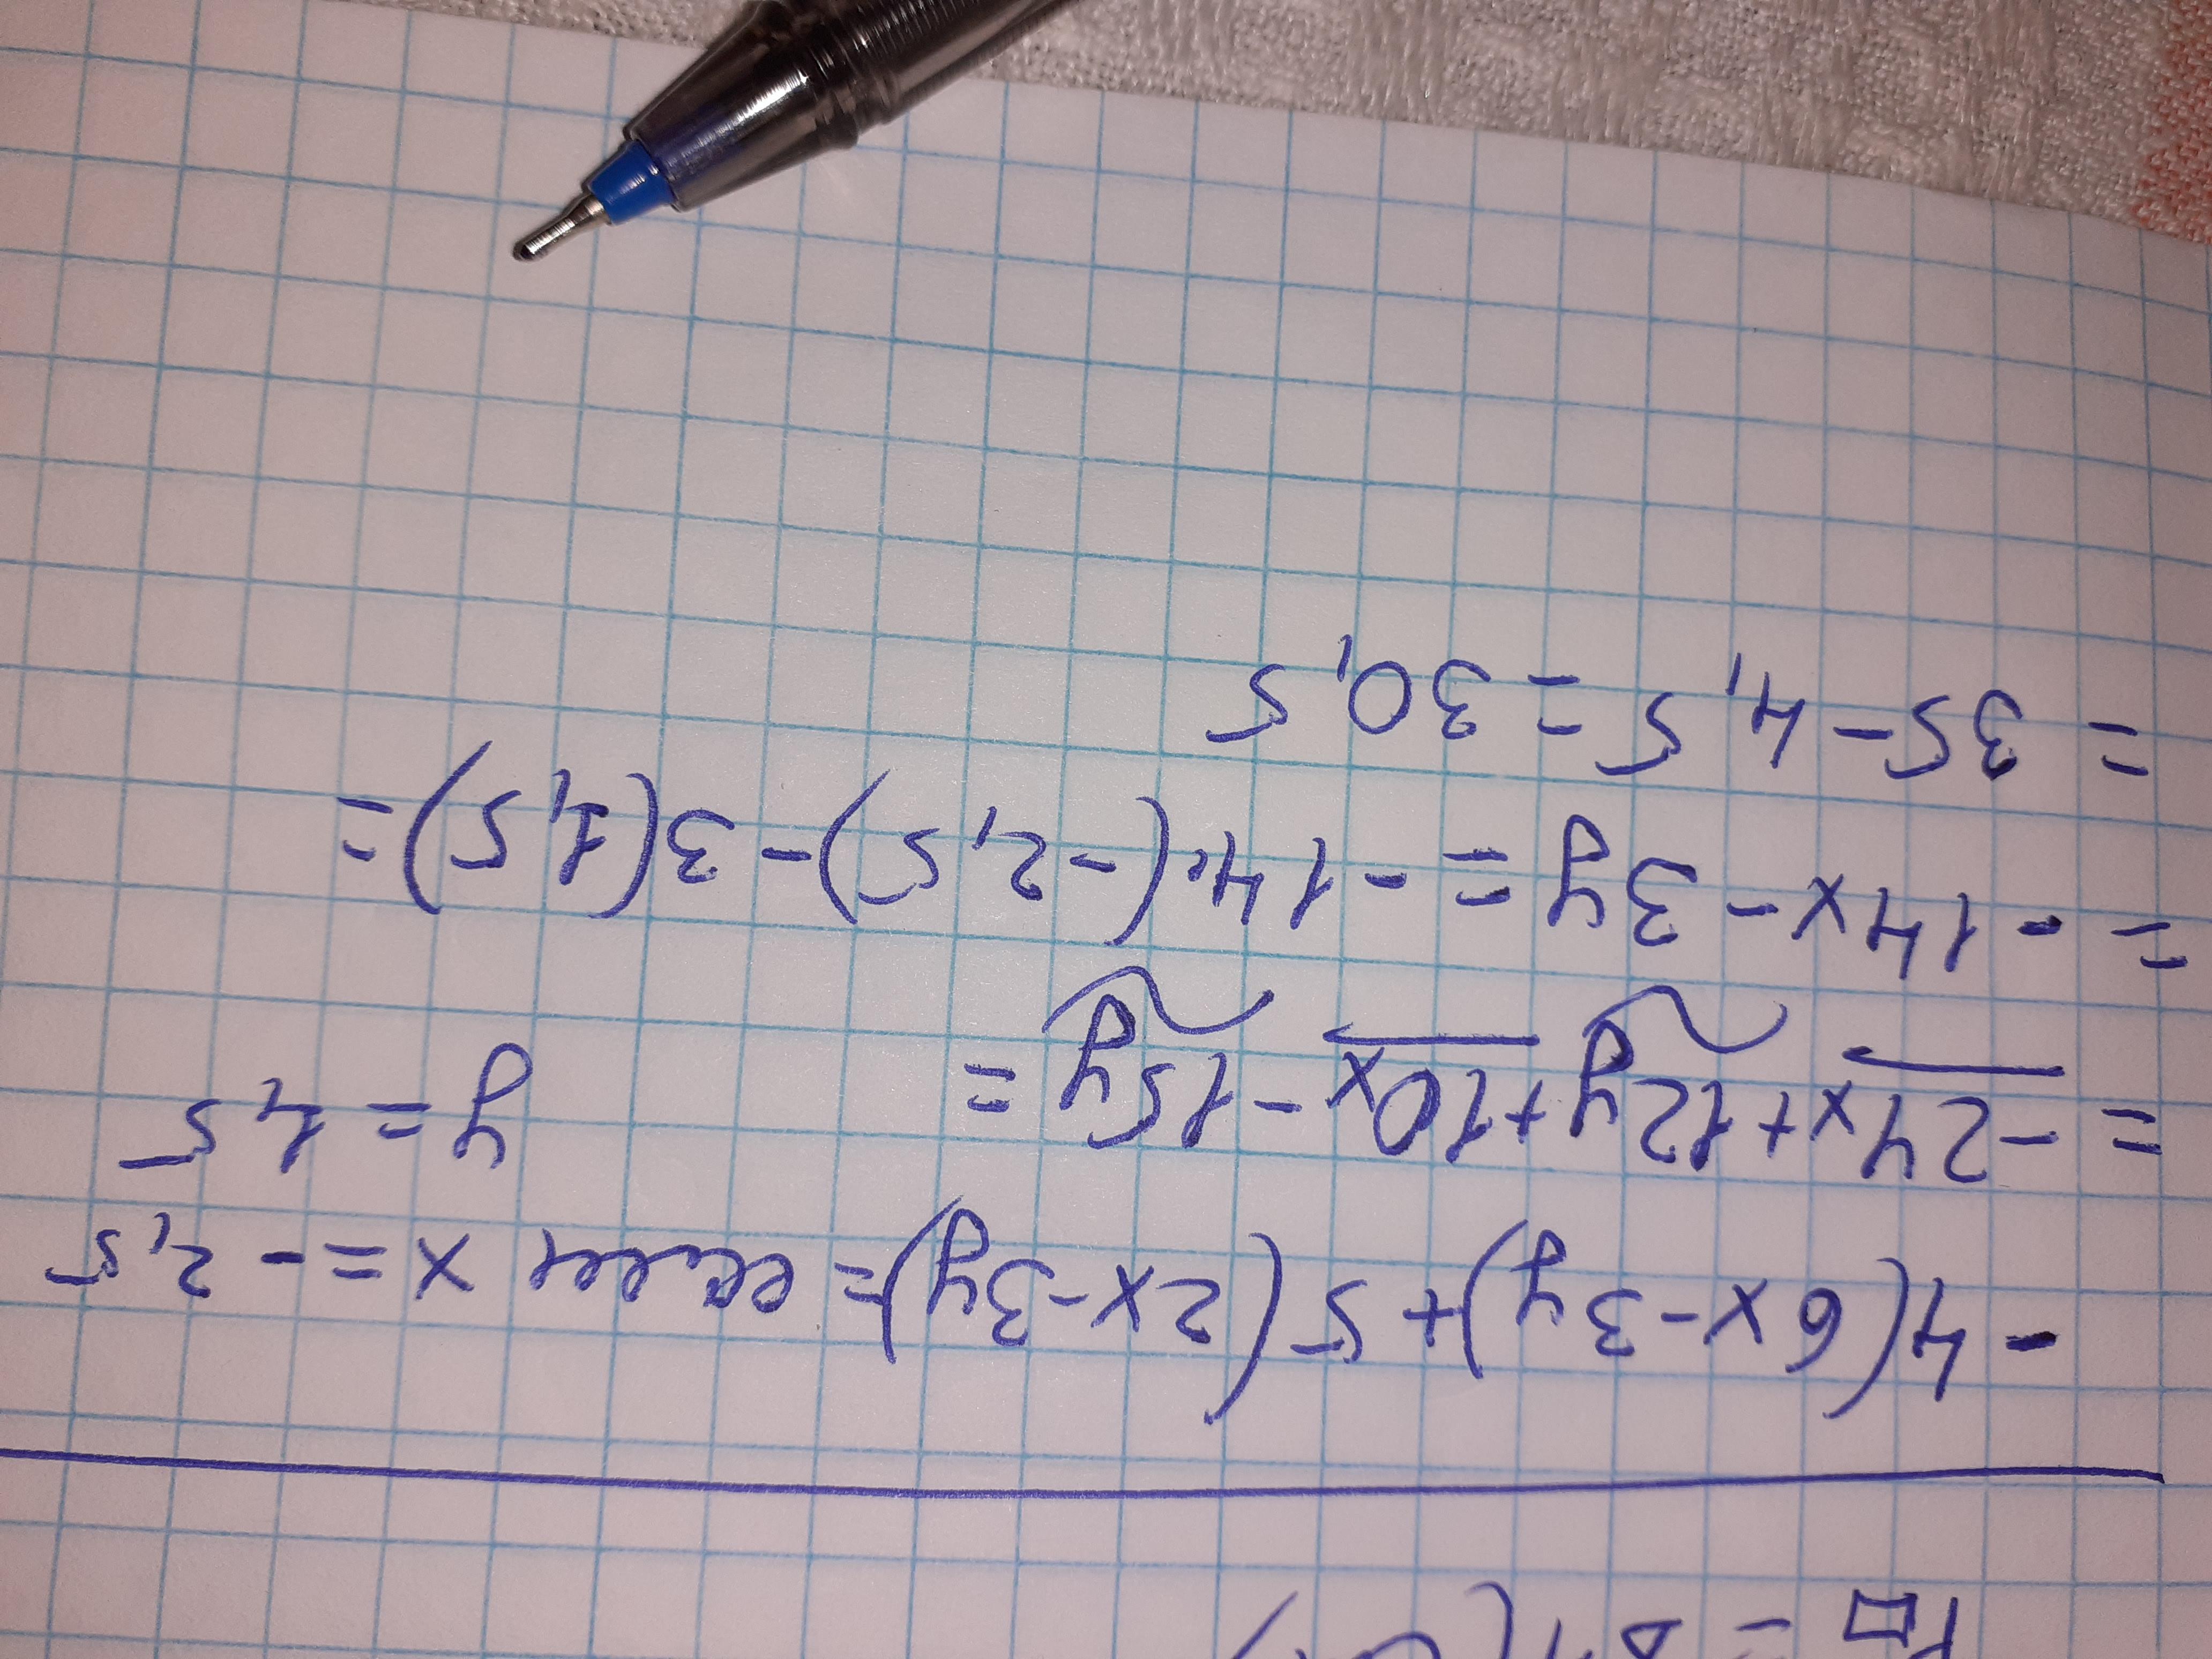 P□ =
-4(6x-3y)+5(2x-3y)= если x=-2,5
y=1,5
=-24x+12y+10x-15y=
=-14x-3y=-14·(-2,5)-3(1,5)=
=35-4,5=30,5